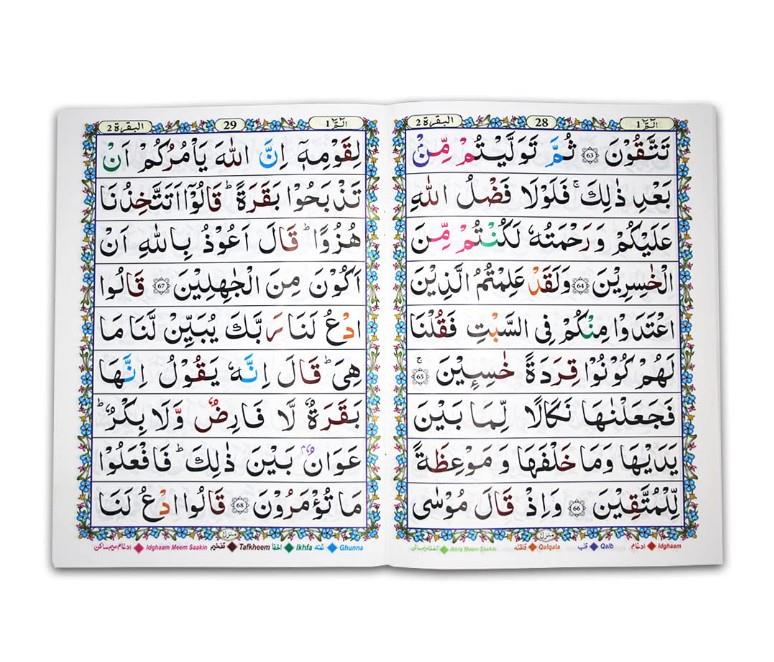 الٓمّٓ ١
28
البقرة ٢
تَتَّقُوْنَ ﴿63﴾ ثُمَّ تَوَلَّيْتُمْ مِّنْۢ
بَعْدِ ذٰلِكَ ۚ فَلَوْلَا فَضْلُ اللّٰهِ
عَلَيْكُمْ وَرَحْمَتُهٗ لَكُنْتُمْ مِّنَ
الْخٰسِرِيْنَ ﴿64﴾ وَلَقَدْ عَلِمْتُمُ الَّذِيْنَ
اعْتَدَوْا مِنْكُمْ فِى السَّبْتِ فَقُلْنَا
لَهُمْ كُوْنُوْا قِرَدَةً خٰسِـِٕيْنَ ﴿65﴾ ۚ
فَجَعَلْنٰهَا نَكَالًا لِّمَا بَيْنَ
يَدَيْهَا وَمَا خَلْفَهَا وَمَوْعِظَةً
لِّلْمُتَّقِيْنَ ﴿66﴾ وَاِذْ قَالَ مُوْسٰى
Idghaam ادغام Qalb قلب Qalqala قلقله Ikhfa Meem Saakin اخفا میم ساکن
الٓمّٓ ١
29
البقرة ٢
لِقَوْمِهٖٓ اِنَّ اللّٰهَ يَاْمُرُكُمْ اَنْ
تَذْبَحُوْا بَقَرَةً ؕ قَالُوْٓا اَتَتَّخِذُنَا
هُزُوًا ؕ قَالَ اَعُوْذُ بِاللّٰهِ اَنْ
اَكُوْنَ مِنَ الْجٰهِلِيْنَ ﴿67﴾ قَالُوا
ادْعُ لَنَا رَبَّكَ يُبَيِّنْ لَّنَا مَا
هِىَ ؕ قَالَ اِنَّهٗ يَقُوْلُ اِنَّهَا
بَقَرَةٌ لَّا فَارِضٌ وَّلَا بِكْرٌ ؕ
عَوَانٌۢ بَيْنَ ذٰلِكَ ؕ فَافْعَلُوْا
مَا تُؤْمَرُوْنَ ﴿68﴾ قَالُوا ادْعُ لَنَا
Ghunna غنه Ikhfa اخفا Tafkheem تفخیم Idghaam Meem Saakin ادغام میم ساکن